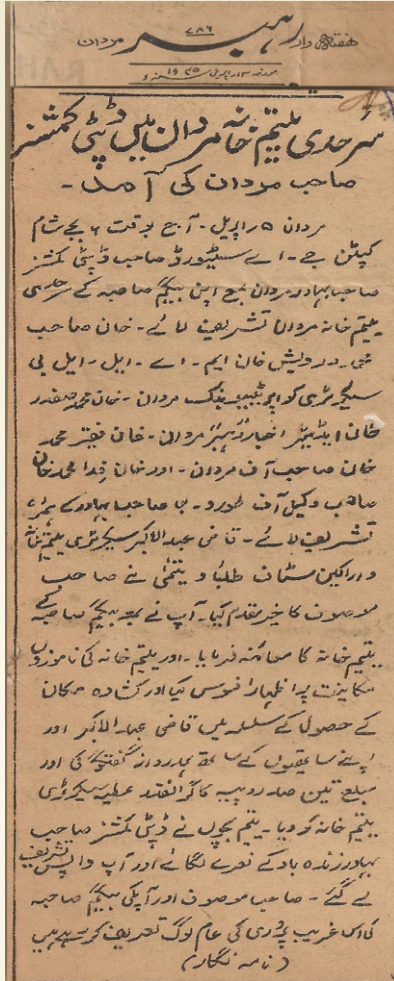 ۷۸۶
ہفتہ وار رہبر مردان
مورخہ ۱۳ اپریل سنہ ۱۹۴۵ء
سرحدی یتیم خانہ مردان میں ڈپٹی کمشنر
صاحب مردان کی آمد۔
مردان ۵ راپریل۔ آج بوقت ۶ بجے شام
کیپٹن جے۔ اے سٹیورڈ صاحب ڈپٹی کمشنر
صاحب بہادر مردان بمع اپنی بیگم صاحبہ کے سرحدی
یتیم خانہ مردان تشریف لائے۔ خان صاحب
درویش خان ایم۔ اے۔ ایل۔ ایل بی
سیکرٹری کواپریٹیو بنک مردان۔ خان محمد صفدر
خان ایڈیٹر اخبار رہبر مردان۔ خان فقیر محمد
خان صاحب آف مردان۔ اور خان فدا محمد خان
صاحب وکیل آف طورو۔ صاحب بہادر کے ہمراہ
تشریف لائے۔ قاضی عبدالاکبر سیکرٹری یتیم خانہ
و اراکین سٹاف طلبا و یتمیٰ نے صاحب
موصوف کا خیر مقدم کیا۔ آپ نے بمعہ بیگم صاحبہ کے
یتیم خانہ کا معائنہ فرمایا۔ اور یتیم خانہ کی ناموزوں
مکانیت پر اظہار افسوس کیا اور کشادہ مکان
کے حصول کے سلسلہ میں قاضی عبدالاکبر اور
اپنے ساتھیوں کے ساتھ ہمدردانہ گفتگو کی اور
مبلغ تین صد روپیہ کا گرانقدر عطیہ سیکرٹری
یتیم خانہ کو دیا۔ یتیم بچوں نے ڈپٹی کمشنر صاحب
بہادر زندہ باد کے نعرے لگائے اور آپ واپس تشریف
لے گئے۔ صاحب موصوف اور آپکی بیگم صاحبہ
کی اس غریب پروری کی عام لوگ تعریف کر رہے ہیں
(نامہ نگار)